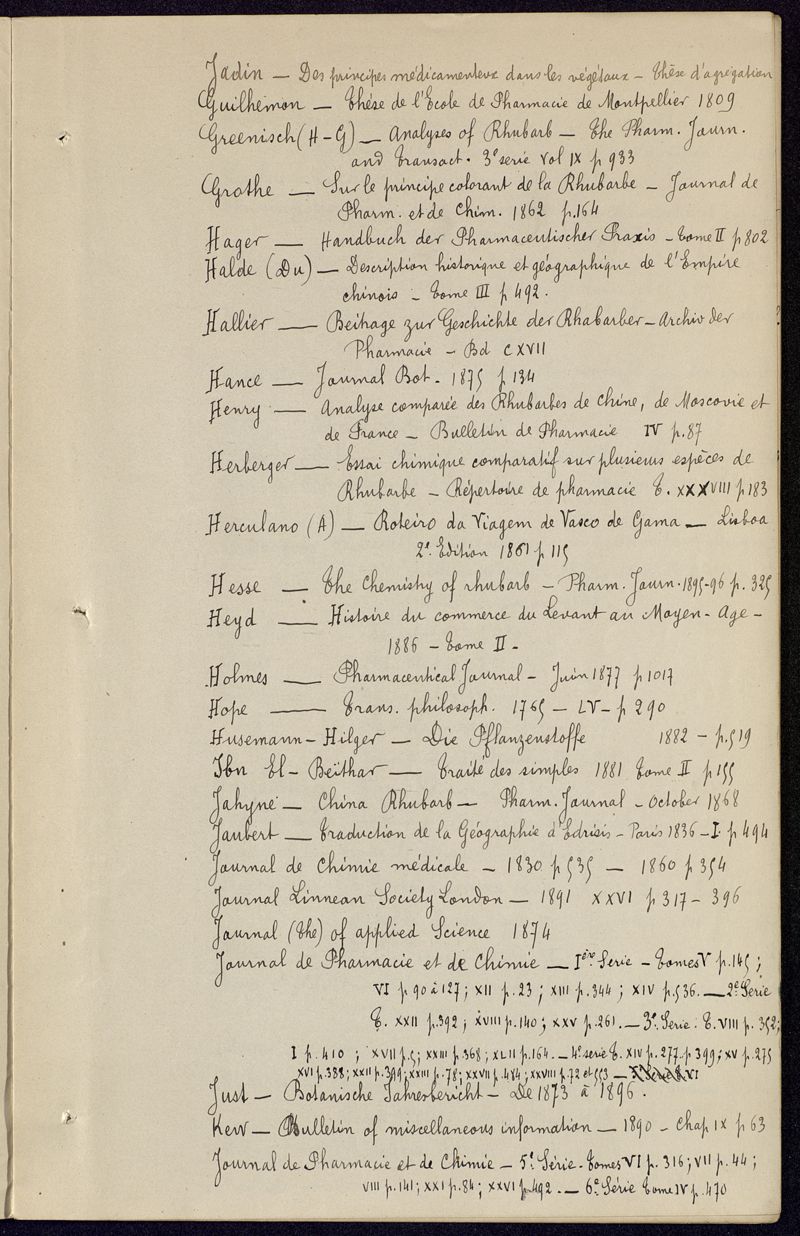 Jadin — Des principes médicamenteux dans les végétaux — Thèse d'agrégation
Guilhemon — Thèse de l'Ecole de Pharmacie de Montpellier 1809
Greenisch (H-G) — Analyses of Rhubarb — The Pharm. Journ.
and Transact. 3e serie Vol IX p 933
Grothe — Sur le principe colorant de la Rhubarbe — Journal de
Pharm. et de Chim. 1862 p.164
Hager — Handbuch der Pharmaceutischer Praxis — Tome II p 802
Halde (Du) — Description historique et géographique de l'Empire
chinois — Tome III p 492.
Hallier — Beitrage zur Geschichte der Rhabarber — Archiv der
Pharmacie — Bd CXVII
Hance — Journal Bot. 1875 p 134
Henry — Analyse comparée des Rhubarbes de Chine, de Moscovie et
de France — Bulletin de Pharmacie IV p.87
Herberger — Essai chimique comparatif sur plusieurs espèces de
Rhubarbe — Répertoire de pharmacie T. XXXVIII p 183
Herculano (A) — Roteiro da Viagem de Vasco de Gama — Lisboa
2e Edition 1861 p 115
Hesse — The Chemistry of rhubarb — Pharm. Journ. 1895-96 p. 325
Heyd — Histoire du commerce du Levant au Moyen-Age —
1886 — Tome II —
Holmes — Pharmaceutical Journal — Juin 1877 p 1017
Hope — Trans. philosoph. 1765 — LV — p 290
Husemann-Hilger — Die Pflanzenstoffe 1882 — p.519
Ibn El-Beïthar — Traité des simples 1881 Tome II p 155
Jahyne — China Rhubarb — Pharm. Journal — October 1868
Jaubert — Traduction de la Géographie d'Edrisis — Paris 1836 — I p 494
Journal de Chimie médicale — 1830 p 535 — 1860 p 354
Journal Linnean Society London — 1891 XXVI p 317-396
Journal (The) of applied Science 1874
Journal de Pharmacie et de Chimie — Ière Serie — Tomes V p.145;
VI p 90 à 127; XII p.23; XIII p.344; XIV p.536. — 2e Serie
T. XXII p.392; XVIII p.140; XXV p.261. — 3e Serie. T. VIII p. 352;
I p.410; XVII p.5; XXIII p.368; XLII p.164. — 4e serie T. XIV p.277. p 399; XV p.275
XVI p.388; XXII p.399; XXIII p.78; XXVII p.484; XXVIII p.72 et 553 —
Just — Botanische Jahrerbericht — De 1873 à 1896.
Kew — Bulletin of miscellaneous information — 1890 — Chap IX p 63
Journal de Pharmacie et de Chimie — 5e Série — Tomes VI p. 316; VII p. 44;
VIII p.141; XXI p.84; XXVI p.492. — 6e Série Tome IV p.470